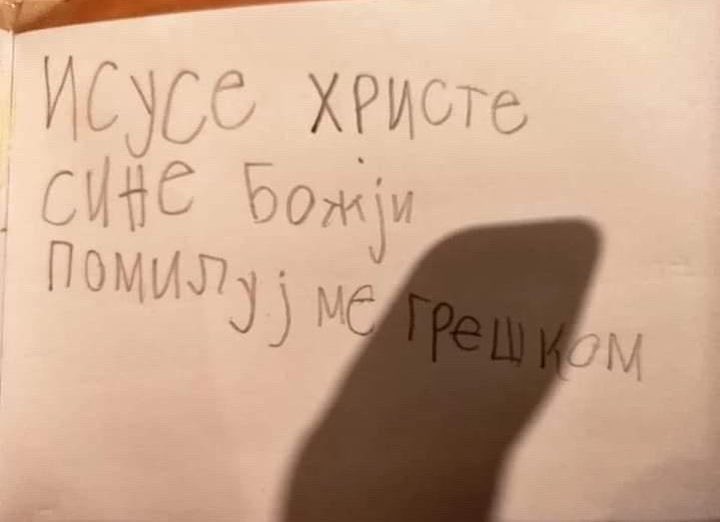 ИСУСЕ ХРИСТЕ
СИНЕ БОЖЈИ
ПОМИЛУЈ МЕ ГРЕШКОМ